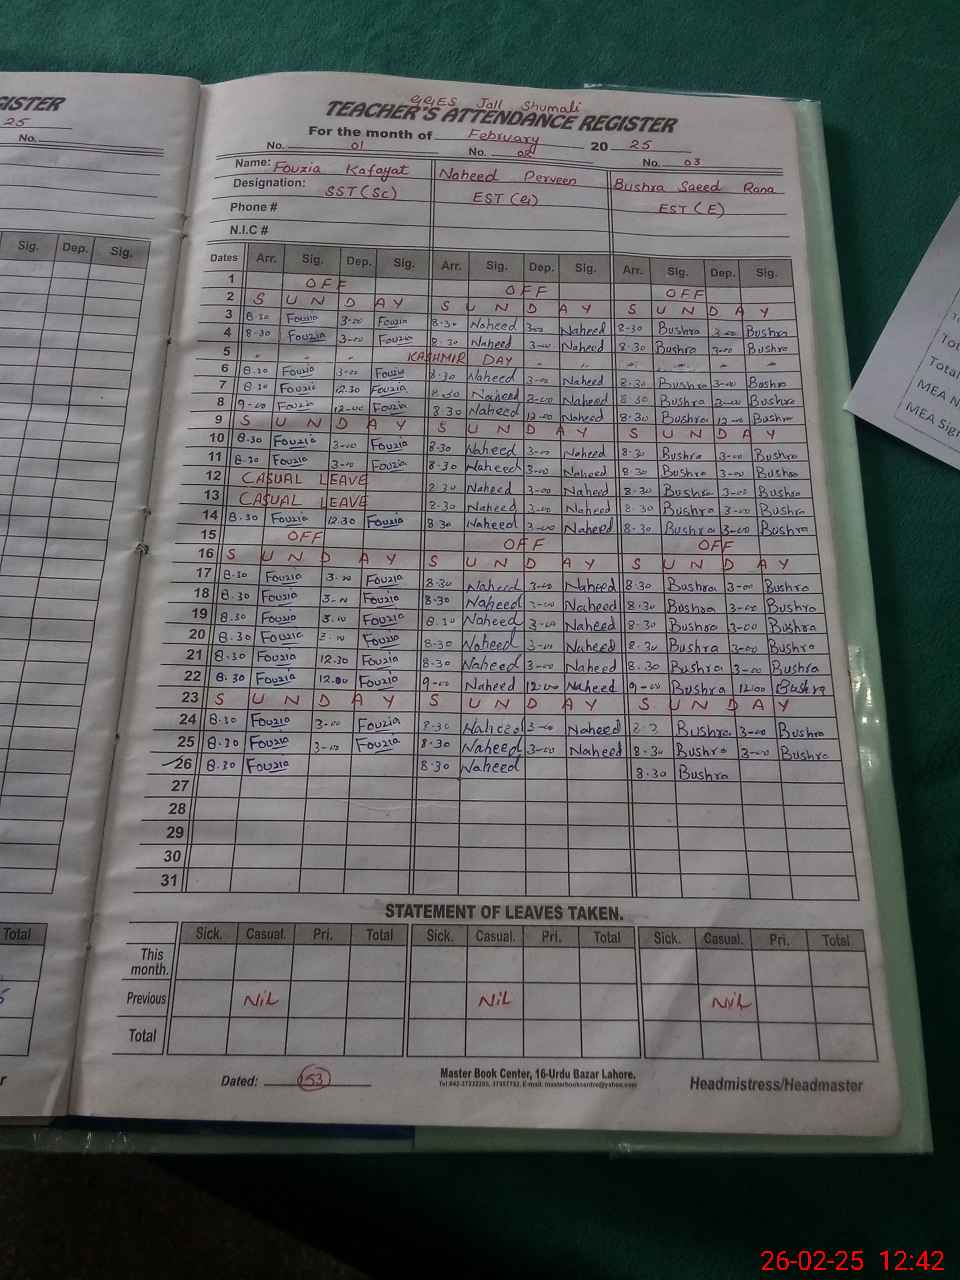 GISTER
25
No.
Sig. Dep. Sig.
Total
GGES Jall Shumali
TEACHER'S ATTENDANCE REGISTER
For the month of February 20 25
No. 01 No. 02 No. 03
Name: Fouzia Kafayat Naheed Perveen Bushra Saeed Rana
Designation: SST (Sc) EST (ei) EST (E)
Phone #
N.I.C #
Dates Arr. Sig. Dep. Sig. Arr. Sig. Dep. Sig. Arr. Sig. Dep. Sig.
1 OFF OFF OFF
2 S U N D A Y S U N D A Y S U N D A Y
3 8-30 Fouzia 3-00 Fouzia 8-30 Naheed 3-00 Naheed 8-30 Bushra 3-00 Bushra
4 8-30 Fouzia 3-00 Fouzia 8-30 Naheed 3-00 Naheed 8-30 Bushra 3-00 Bushra
5 KASHMIR DAY
6 8-30 Fouzia 3-00 Fouzia 8-30 Naheed 3-00 Naheed 8-30 Bushra 3-00 Bushra
7 8-30 Fouzia 12.30 Fouzia 8-30 Naheed 3-00 Naheed 8-30 Bushra 3-00 Bushra
8 9-00 Fouzia 12-00 Fouzia 8-30 Naheed 12-00 Naheed 8-30 Bushra 12-00 Bushra
9 S U N D A Y S U N D A Y S U N D A Y
10 8-30 Fouzia 3-00 Fouzia 8-30 Naheed 3-00 Naheed 8-30 Bushra 3-00 Bushra
11 8-30 Fouzia 3-00 Fouzia 8-30 Naheed 3-00 Naheed 8-30 Bushra 3-00 Bushra
12 CASUAL LEAVE 8-30 Naheed 3-00 Naheed 8-30 Bushra 3-00 Bushra
13 CASUAL LEAVE 8-30 Naheed 3-00 Naheed 8-30 Bushra 3-00 Bushra
14 8-30 Fouzia 12.30 Fouzia 8-30 Naheed 3-00 Naheed 8-30 Bushra 3-00 Bushra
15 OFF OFF OFF
16 S U N D A Y S U N D A Y S U N D A Y
17 8-30 Fouzia 3-00 Fouzia 8-30 Naheed 3-00 Naheed 8-30 Bushra 3-00 Bushra
18 8-30 Fouzia 3-00 Fouzia 8-30 Naheed 3-00 Naheed 8-30 Bushra 3-00 Bushra
19 8-30 Fouzia 3-00 Fouzia 8-30 Naheed 3-00 Naheed 8-30 Bushra 3-00 Bushra
20 8-30 Fouzia 3-00 Fouzia 8-30 Naheed 3-00 Naheed 8-30 Bushra 3-00 Bushra
21 8-30 Fouzia 12.30 Fouzia 8-30 Naheed 3-00 Naheed 8-30 Bushra 3-00 Bushra
22 8-30 Fouzia 12.00 Fouzia 9-00 Naheed 12-00 Naheed 9-00 Bushra 12.00 Bushra
23 S U N D A Y S U N D A Y S U N D A Y
24 8-30 Fouzia 3-00 Fouzia 8-30 Naheed 3-00 Naheed Bushra 3-00 Bushra
25 8-30 Fouzia 3-00 Fouzia 8-30 Naheed 3-00 Naheed 8-30 Bushra 3-00 Bushra
26 8-30 Fouzia 8-30 Naheed 8-30 Bushra
27
28
29
30
31
STATEMENT OF LEAVES TAKEN.
Sick. Casual. Pri. Total Sick. Casual. Pri. Total Sick. Casual. Pri. Total
This month.
Previous Nil Nil Nil
Total
Dated: 53
Master Book Center, 16-Urdu Bazar Lahore.
Headmistress/Headmaster
Total
MEA N
MEA Sign
26-02-25 12:42